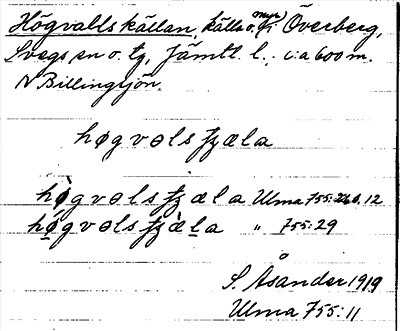 Högvalls källan, källa o. myr i Överberg,
Svegs sn o. tg, Jämtl. l. : c:a 600 m.
N Billingsjön.
høgvɵlsꞙʒæla
hø̀gvɵlsꞙʒæla Ulma 755: 12
hǿgvɵlsꞙʒæ̀la " 755:29
S. Åsander 1919
Ulma 755:11